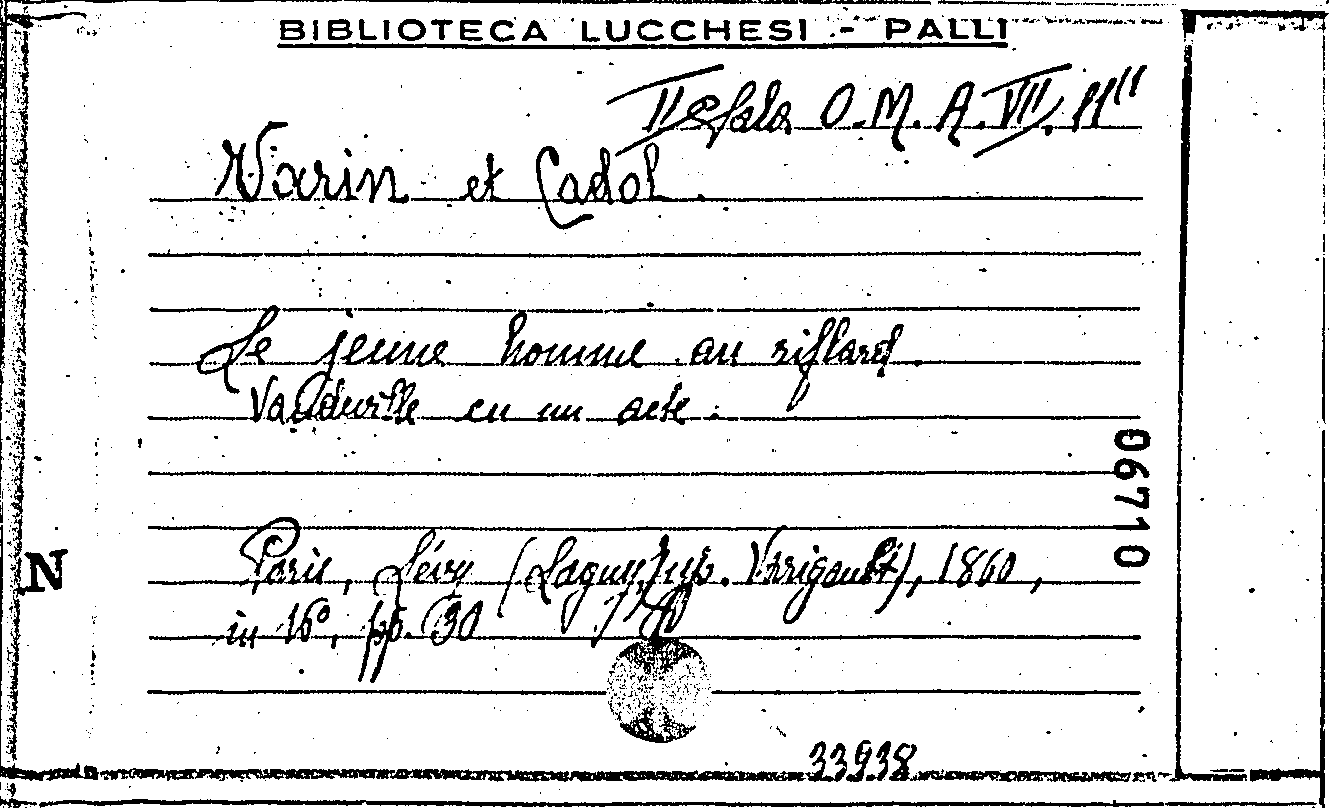 BIBLIOTECA LUCCHESI - PALLI
IIe Sala O. M. A. VII. 11"
Varin et Cadol.
Le jeune homme au riflard.
Vaudeville en un acte.
06710
Paris, Lévy (Lagny, Imp. Varigault), 1860,
N
in 16°, pp. 30
33938